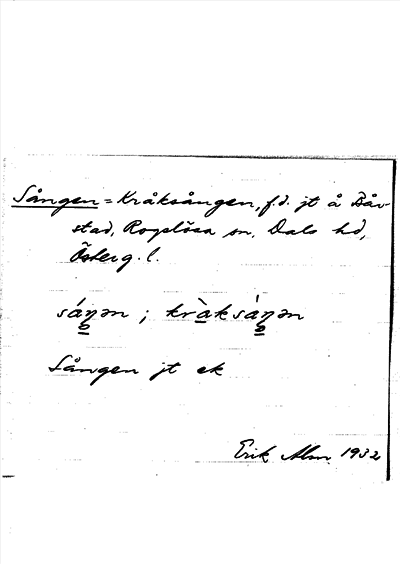 Sången = Kråksången, f.d. jt å Båv-
stad, Rogslösa sn, Dals hd,
Österg. l.
sáŋən ; kràksáŋən
Sången jt ek
Erik Alm 1932